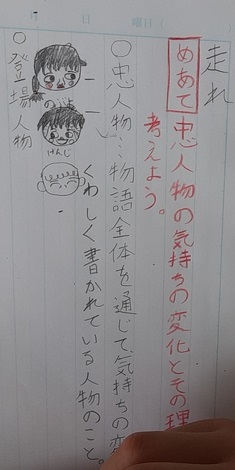 日
曜日(
走れ
めあて 忠人物の気持ちの変化とその理
考えよう。
○忠人物…物語全体を通じて、気持ちの変
くわしく書かれている人物のこと。
○登場人物
のぶよ
けんじ